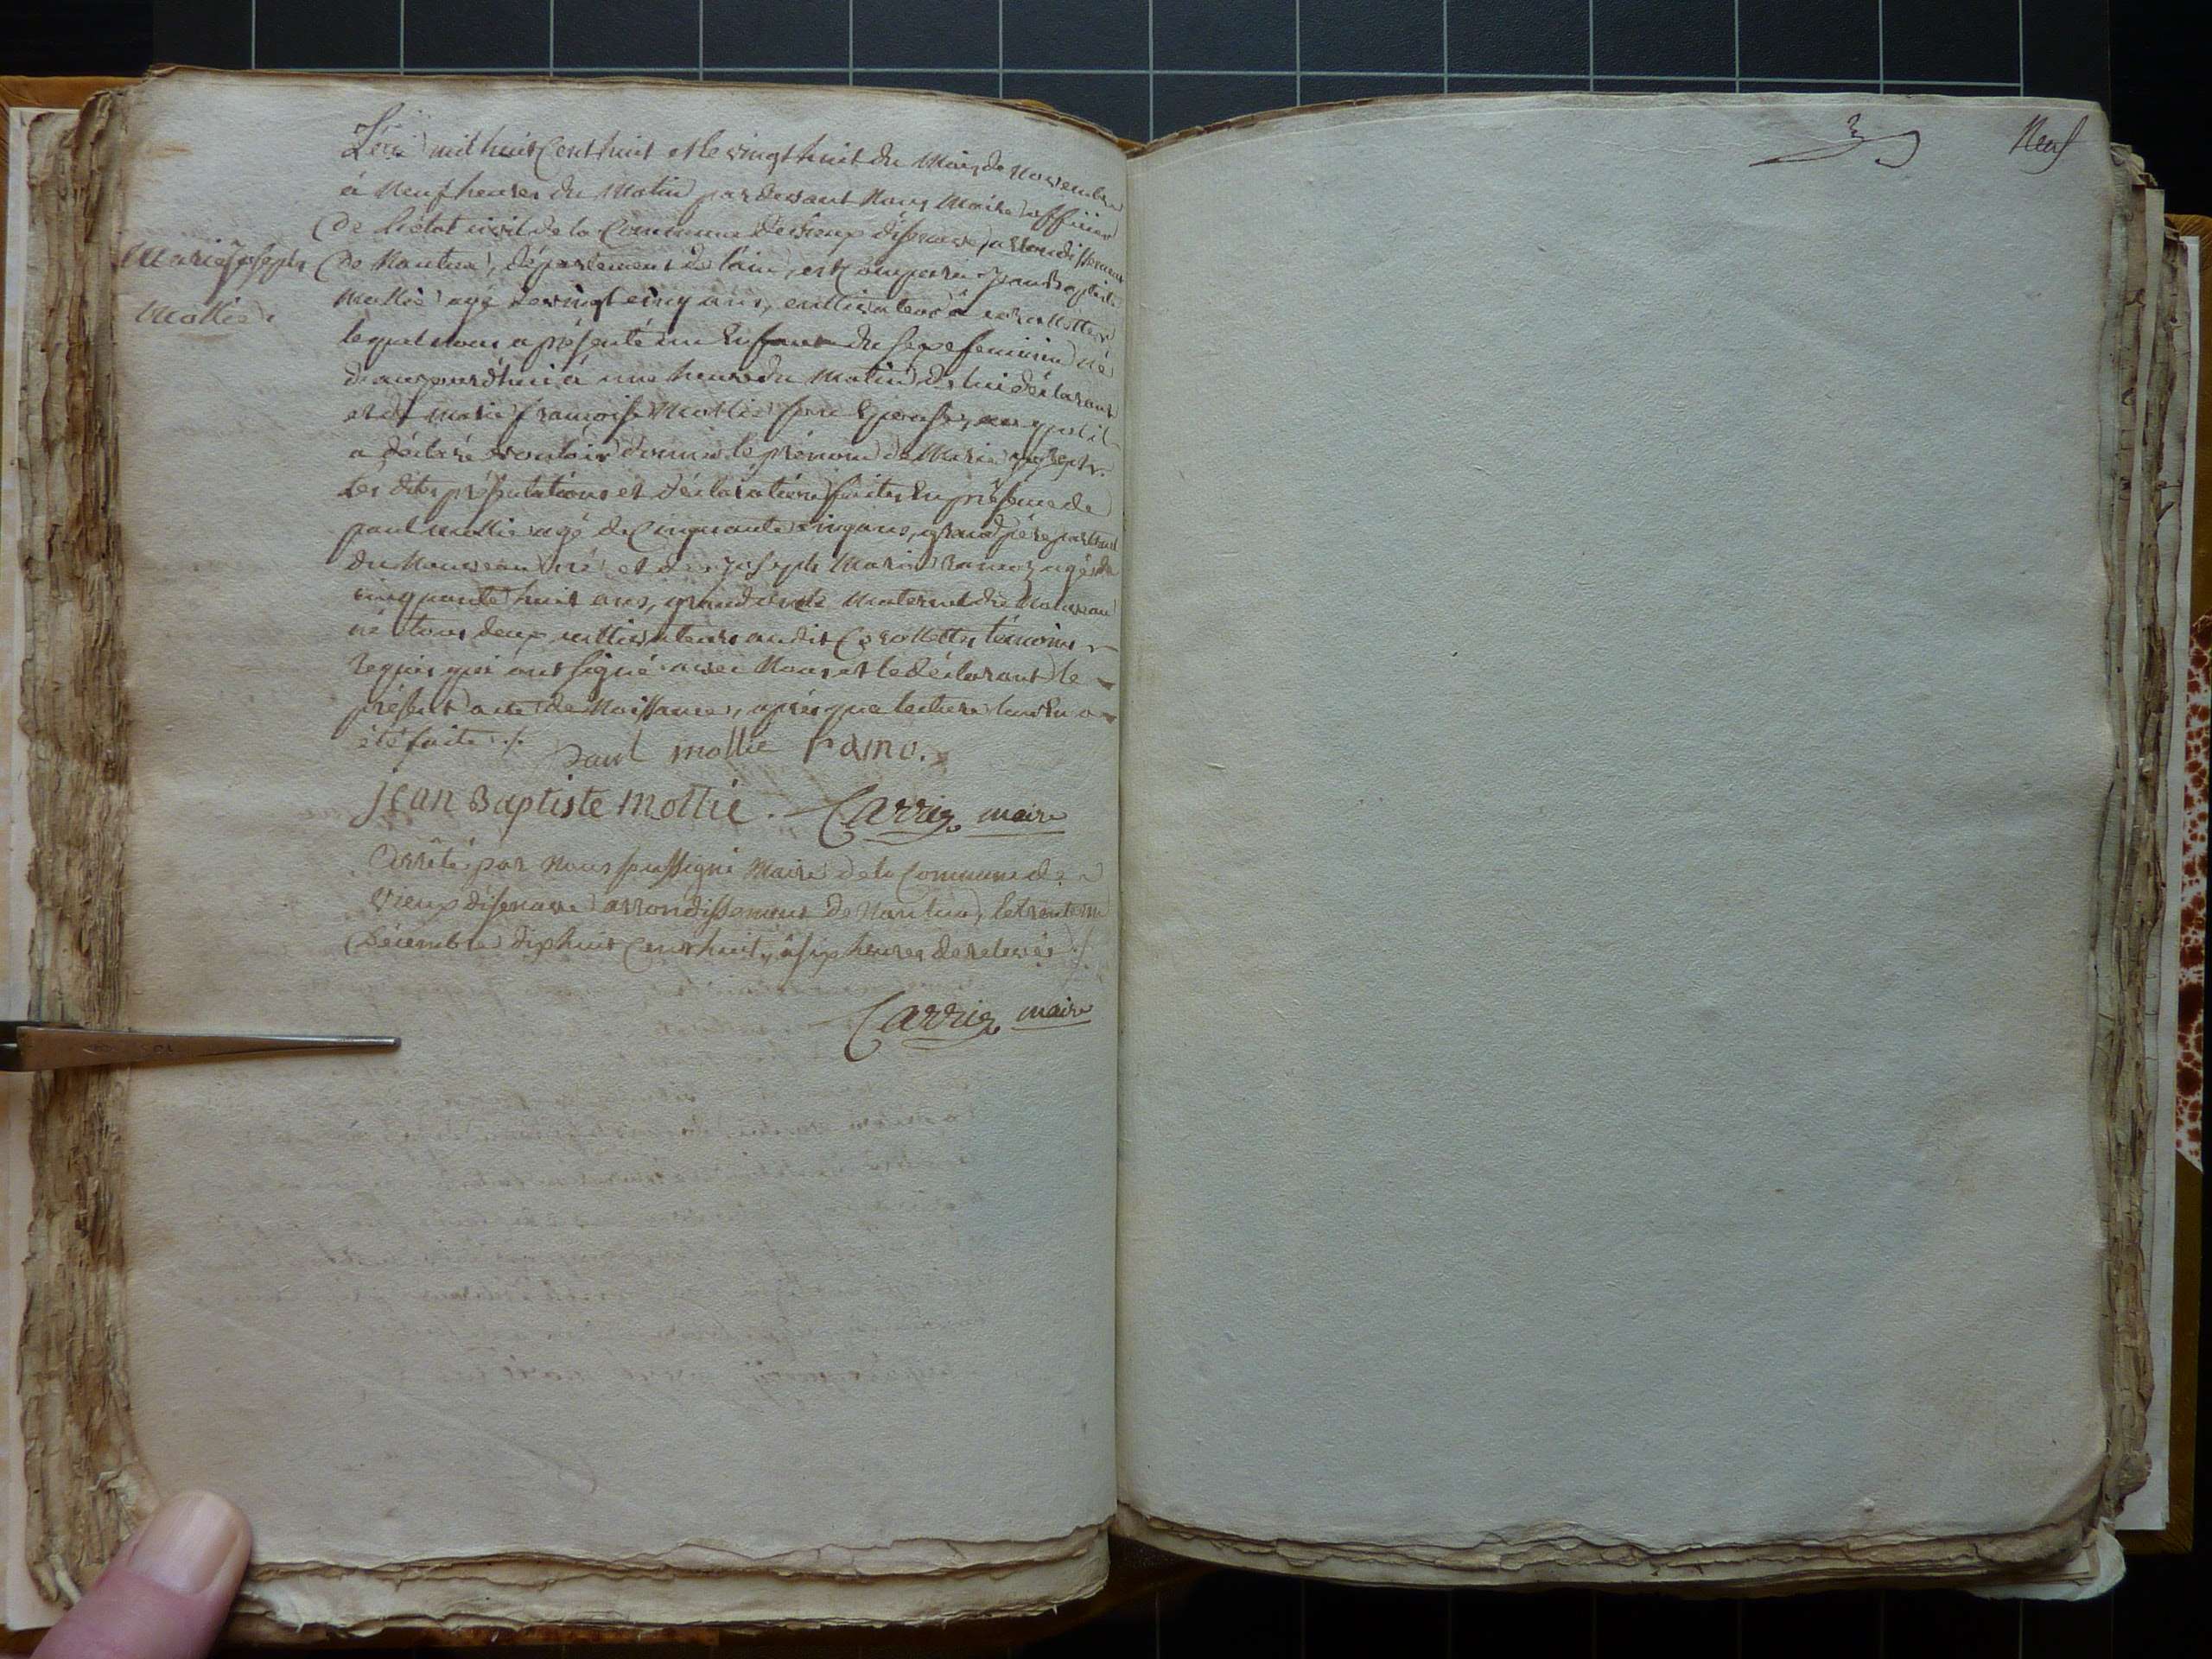 Marie Joseph
Mollié.
L'an mil huit Cent huit et le vingt huit du Mois de Novembre
à Neuf heures du Matin par devant Nous Maire officier
de l'état civil de la Commune de vieux disenave, arrondissement
de Nantua, département de l'ain, est Comparu Jean Baptiste
Mollié agé de vingt cinq ans, cultivateur à
lequel nous a présenté un Enfant du sexe feminin né
d'aujourd'hui à une heure du Matin de lui déclarant
et de Marie françoise Mollié son Epouse, auquel il
a déclaré vouloir donner le prénom de Marie Joseph.
Les dites présentations et déclarations faites En présence de
paul Mollié agé de Cinquante cinq ans, grand père
du Nouveau né et de Joseph Marie Ramoz agé de
cinquante huit ans, grand oncle Maternel du Nouveau
né tous deux cultivateurs audit Corallettes témoins
requis qui ont signé avec Nous et le déclarant le
présent acte de Naissance, après que lecture leur En a
été faite ./.
paul mollie ramo.
jean Baptiste mollié. Carrier maire
Arrêté par Nous soussigné Maire de la Commune de
Vieux disenave arrondissement de Nantua, le trente un
Décembre dix huit Cent huit, à six heures de relevée ./.
Carrier maire
Neuf